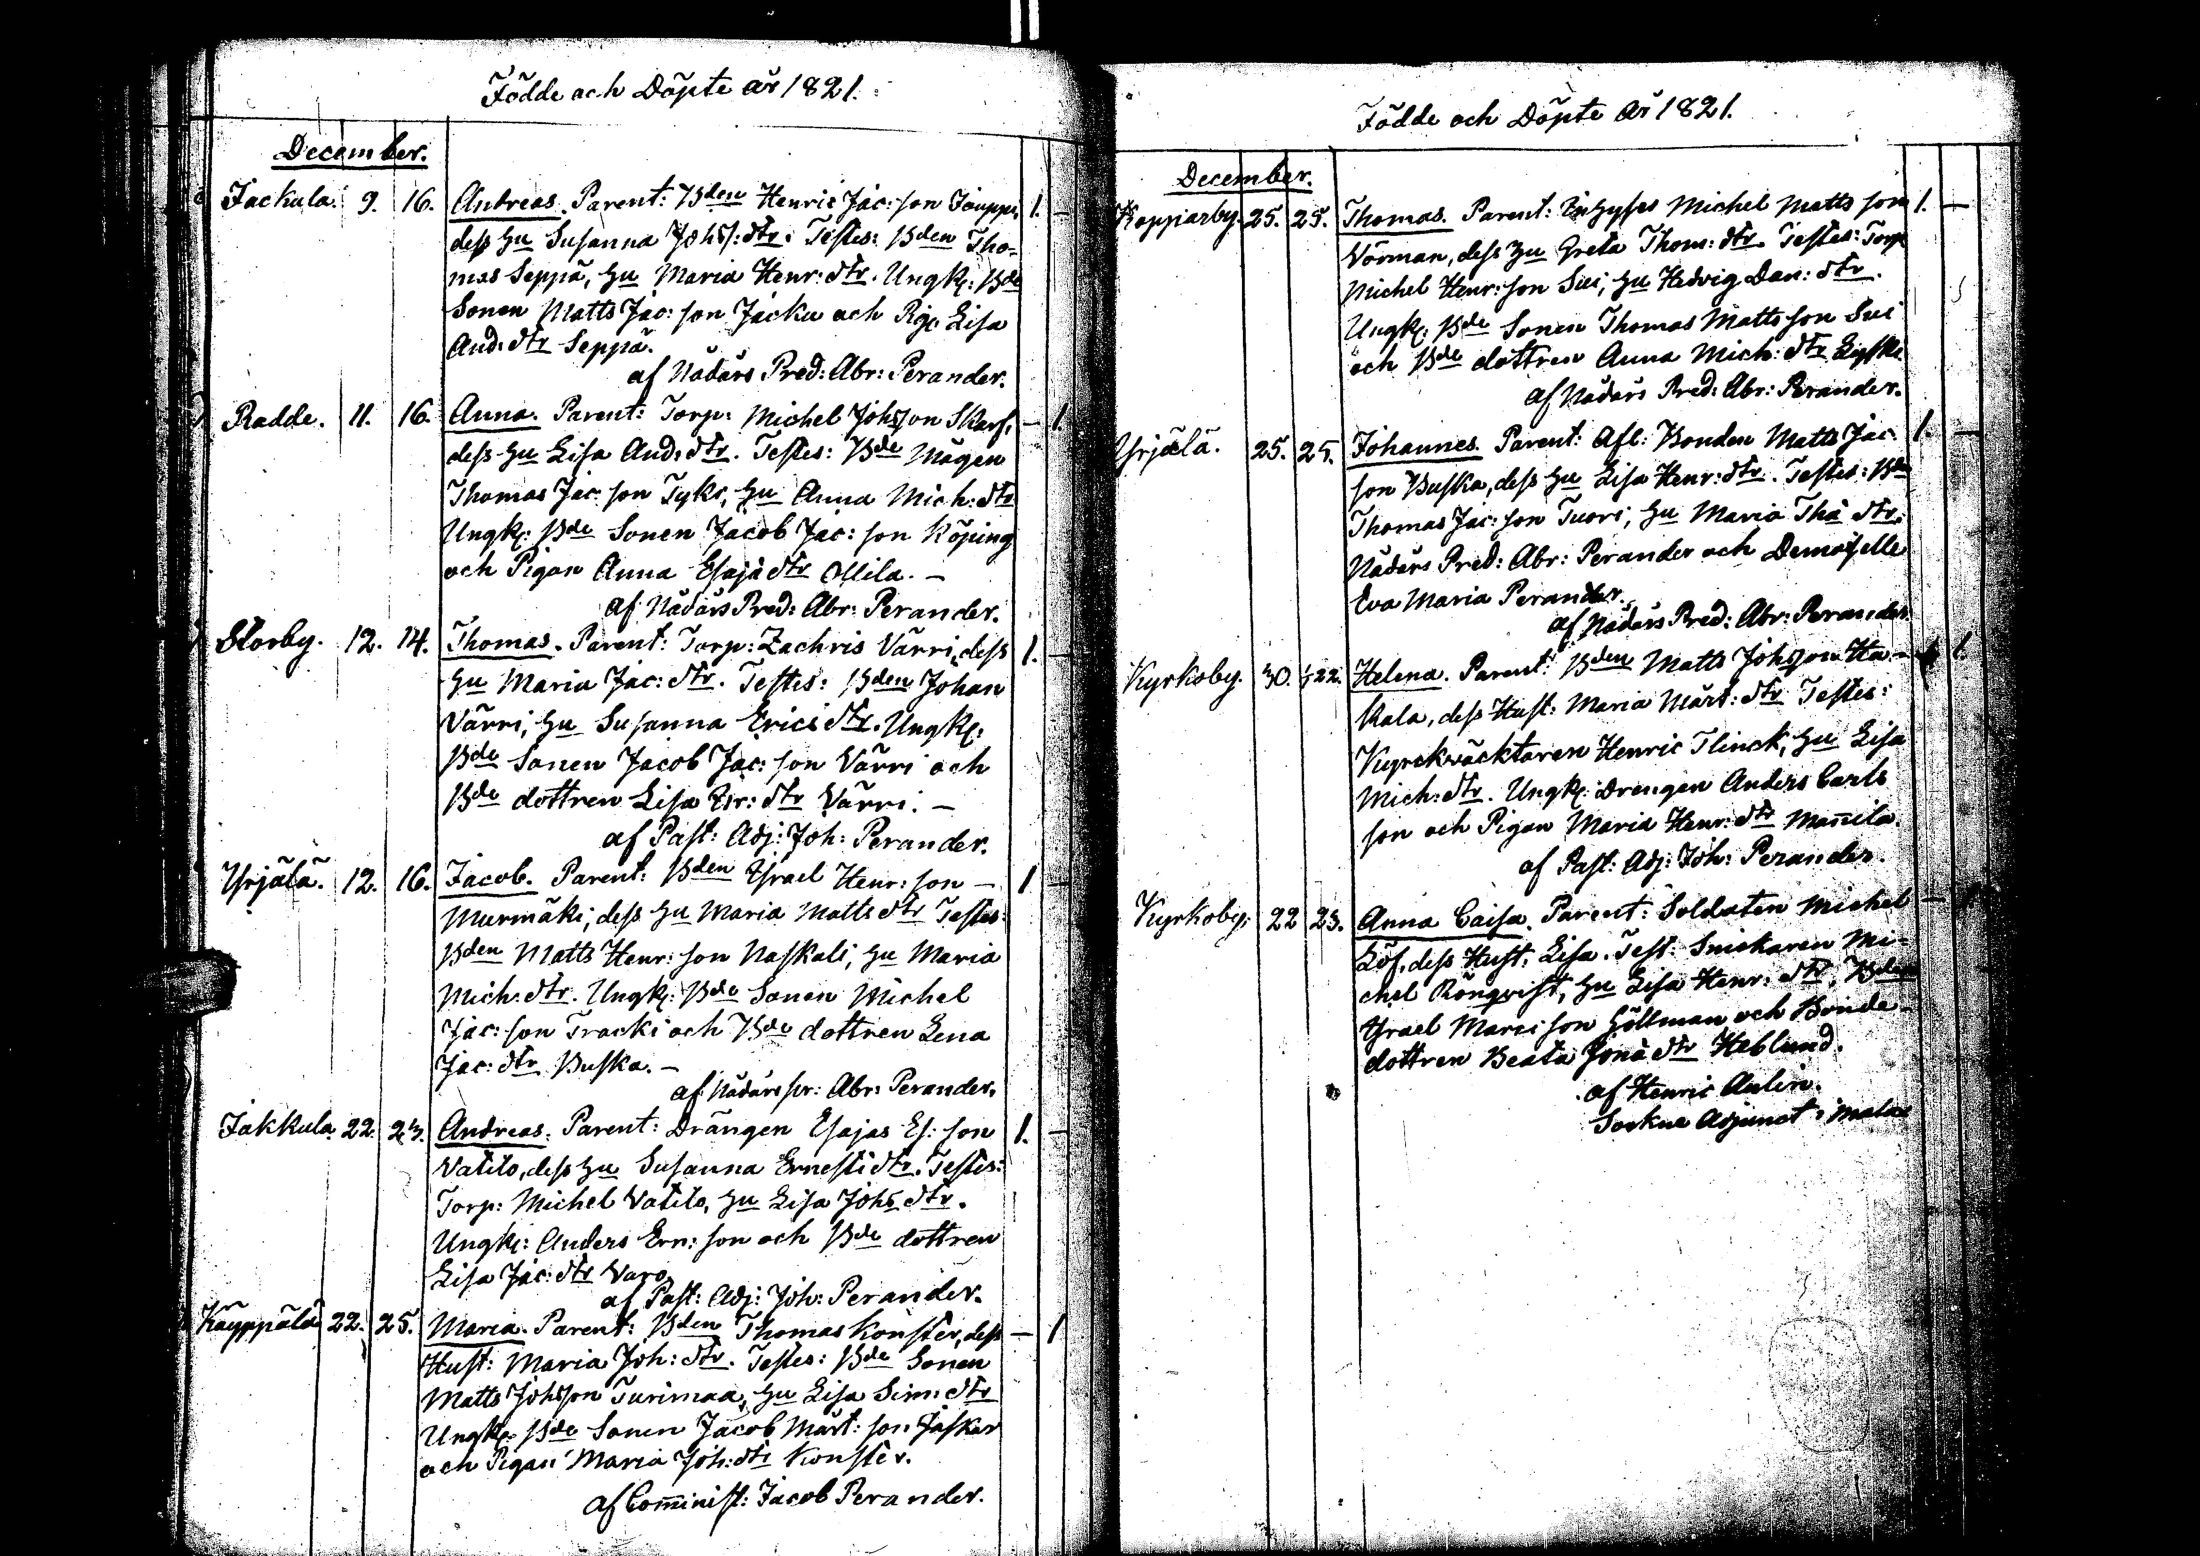 Födde och Döpte år 1821.
December.
Jackula. 9. 16. Andreas. Parent: Bden Henric Jac: son Jouppi, 1. —
dess hu Susanna Johs: dtr. Testes: Bden Tho-
mas Seppä, hu Maria Henr: dtr. Ungk: Bde
Sonen Matts Jac: son Jacku och Pig: Lisa
And: dtr Seppä.
af Nådårs Pred: Abr: Perander.
Radde. 11. 16. Anna. Parent: Torp: Michel Johsson Skarf, — 1.
dess hu Lisa And: dtr. Testes: Bde Mågen
Thomas Jac: son Tyks, hu Anna Mich: dtr
Ungk: Bde Sonen Jacob Jac: son Köping
och Pigan Anna Esajæ dtr Ollila. —
af Nådårs Pred: Abr: Perander.
Storby. 12. 14. Thomas. Parent: Torp: Zachris Värri, dess 1. —
hu Maria Jac: dtr. Testes: Bden Johan
Värri, hu Susanna Erics dtr. Ungk:
Bde Sonen Jacob Jac: son Värri och
Bde dottren Lisa Er: dtr Värri. —
af Past: Adj: Joh: Perander.
Yrjälä. 12. 16. Jacob. Parent: Bden Israel Henr: son — 1 —
Murmäki, dess hu Maria Matts dtr Testes:
Bden Matts Henr: son Naskali, hu Maria
Mich: dtr. Ungk: Bde Sonen Michel
Jac: son Tracki och Bde dottren Lena
Jac: dtr Buska. —
af Nådårs pr: Abr: Perander.
Jakkula. 22. 23. Andreas. Parent: Drängen Esajas Es: son 1. —
Vatilo, dess hu Susanna Ernesti dtr. Testes:
Torp: Michel Vatilo, hu Lisa Johs dtr.
Ungk: Anders Ern: son och Bde dottren
Lisa Jac: dtr Varo.
af Past: Adj: Joh: Perander.
Käyppälä 22. 25. Maria. Parent: Bden Thomas Konster, dess — 1
Hust: Maria Joh: dtr. Testes: Bde Sonen
Matts Johsson Turimaa, hu Lisa Sim: dtr
Ungk: Bde Sonen Jacob Märt: son Jaskar
och Pigan Maria Joh: dtr Konster.
af Com̄inist: Jacob Perander.
Födde och Döpte år 1821.
December.
Koppiarby. 25. 25. Thomas. Parent: Michel Matts son 1. —
Vörman, dess hu Greta Thom: dtr. Testes: Torp
Michel Henr: son Sui, hu Hedvig Dan: dtr.
Ungk: Bde Sonen Thomas Matts son Sui
och Bde dottren Anna Mich: dtr
af Nådårs Pred: Abr: Perander.
Yrjälä. 25. 25. Johannes. Parent: Afl: Bonden Matts Jac: 1. —
son Buska, dess hu Lisa Henr: dtr. Testes: Bde
Thomas Jac: son Tuori, hu Maria Thæ dtr.
Nådårs Pred: Abr: Perander och Demoiselle
Eva Maria Perander.
af Nådårs Pred: Abr: Perander.
Kyrkoby. 30. 22. Helena. Parent: Bden Matts Johsson Ha- — 1.
kala, dess Hust: Maria Märt: dtr Testes:
Kyrckväcktaren Henric Flinck, hu Lisa
Mich: dtr. Ungk: Drengen Anders Carls
son och Pigan Maria Henr: dtr Man̄ila.
af Past: Adj: Joh: Perander.
Kyrkoby. 22 23. Anna Caisa. Parent: Soldaten Michel —
Löf, dess Hust: Lisa. Test: Snickaren Mi-
chel Rönqvist, hu Lisa Henr: dtr, Bden
Israel Marcisson Göllman och Bonde-
dottren Beata Jonæ dtr Heblund.
af Henric Aulin.
Sockne Adjunct i Malax